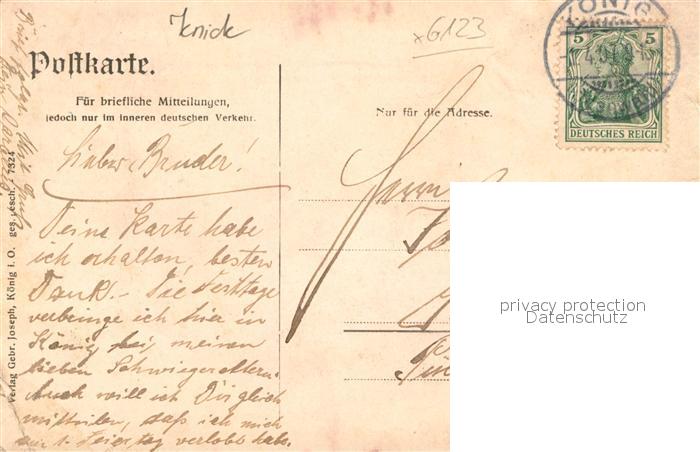 Knick
x G123
KÖNIG
5 5
DEUTSCHES REICH
Postkarte.
Für briefliche Mitteilungen,
jedoch nur im inneren deutschen Verkehr.
Nur für die Adresse.
Lieber Bruder!
Deine Karte habe
ich erhalten, besten
Dank. – Die Festtage
verbringe ich hier in
König bei meinen
lieben Schwiegereltern.
Auch will ich Dir gleich
mitteilen, daß ich mich
am 1. Feiertag verlobt habe.
Verlag Gebr. Joseph, König i. O. ges. gesch. 7324
privacy protection
Datenschutz